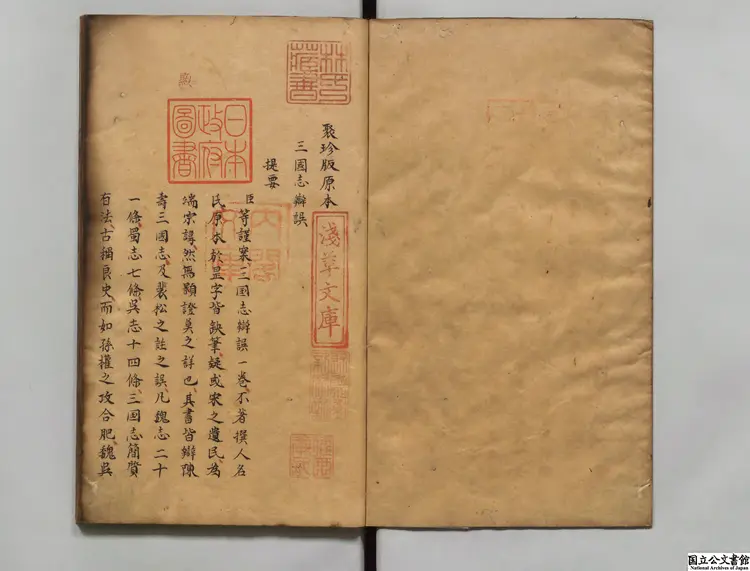 聚珍版原本
三國志辨誤
提要
臣等謹案三國志辨誤一卷不著撰人名
氏原本於昰字皆缺筆疑或宋之遺民為
端宗諱然無顯證莫之詳也其書皆辨陳
壽三國志及裴松之註之誤凡魏志二十
一條蜀志七條吳志十四條三國志簡質
有法古稱良史而如孫權之攻合肥魏吳
林氏藏書
日本政府圖書
淺草文庫
內閣文庫
国立公文書館
National Archives of Japan